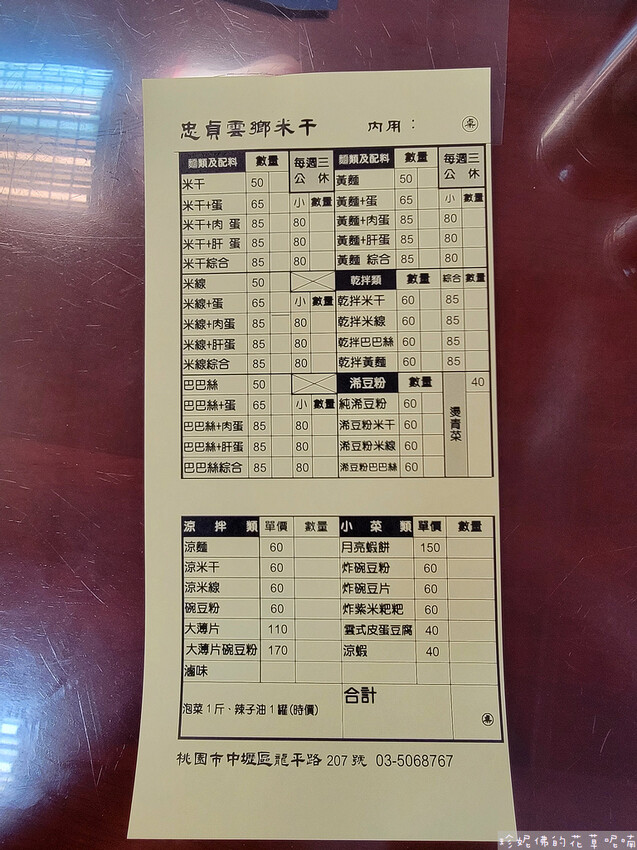 忠貞雲鄉米干 內用： 桌
麵類及配料 數量 每週三公休 麵類及配料 數量 每週三公休
米干 50 黃麵 50
米干+蛋 65 小 數量 黃麵+蛋 65 小 數量
米干+肉 蛋 85 80 黃麵+肉蛋 85 80
米干+肝 蛋 85 80 黃麵+肝蛋 85 80
米干綜合 85 80 黃麵 綜合 85 80
米線 50 乾拌類 數量 綜合 數量
米線+蛋 65 小 數量 乾拌米干 60 85
米線+肉蛋 85 80 乾拌米線 60 85
米線+肝蛋 85 80 乾拌巴巴絲 60 85
米線綜合 85 80 乾拌黃麵 60 85
巴巴絲 50 浠豆粉 數量 燙青菜 40
巴巴絲+蛋 65 小 數量 純浠豆粉 60
巴巴絲+肉蛋 85 80 浠豆粉米干 60
巴巴絲+肝蛋 85 80 浠豆粉米線 60
巴巴絲綜合 85 80 浠豆粉巴巴絲 60
涼拌類 單價 數量 小菜類 單價 數量
涼麵 60 月亮蝦餅 150
涼米干 60 炸碗豆粉 60
涼米線 60 炸碗豆片 60
碗豆粉 60 炸紫米粑粑 60
大薄片 110 雲式皮蛋豆腐 40
大薄片碗豆粉 170 涼蝦 40
滷味
泡菜1斤、辣子油1罐(時價) 合計
桌
桃園市中壢區龍平路 207 號 03-5068767
珍妮佛的花草呢喃